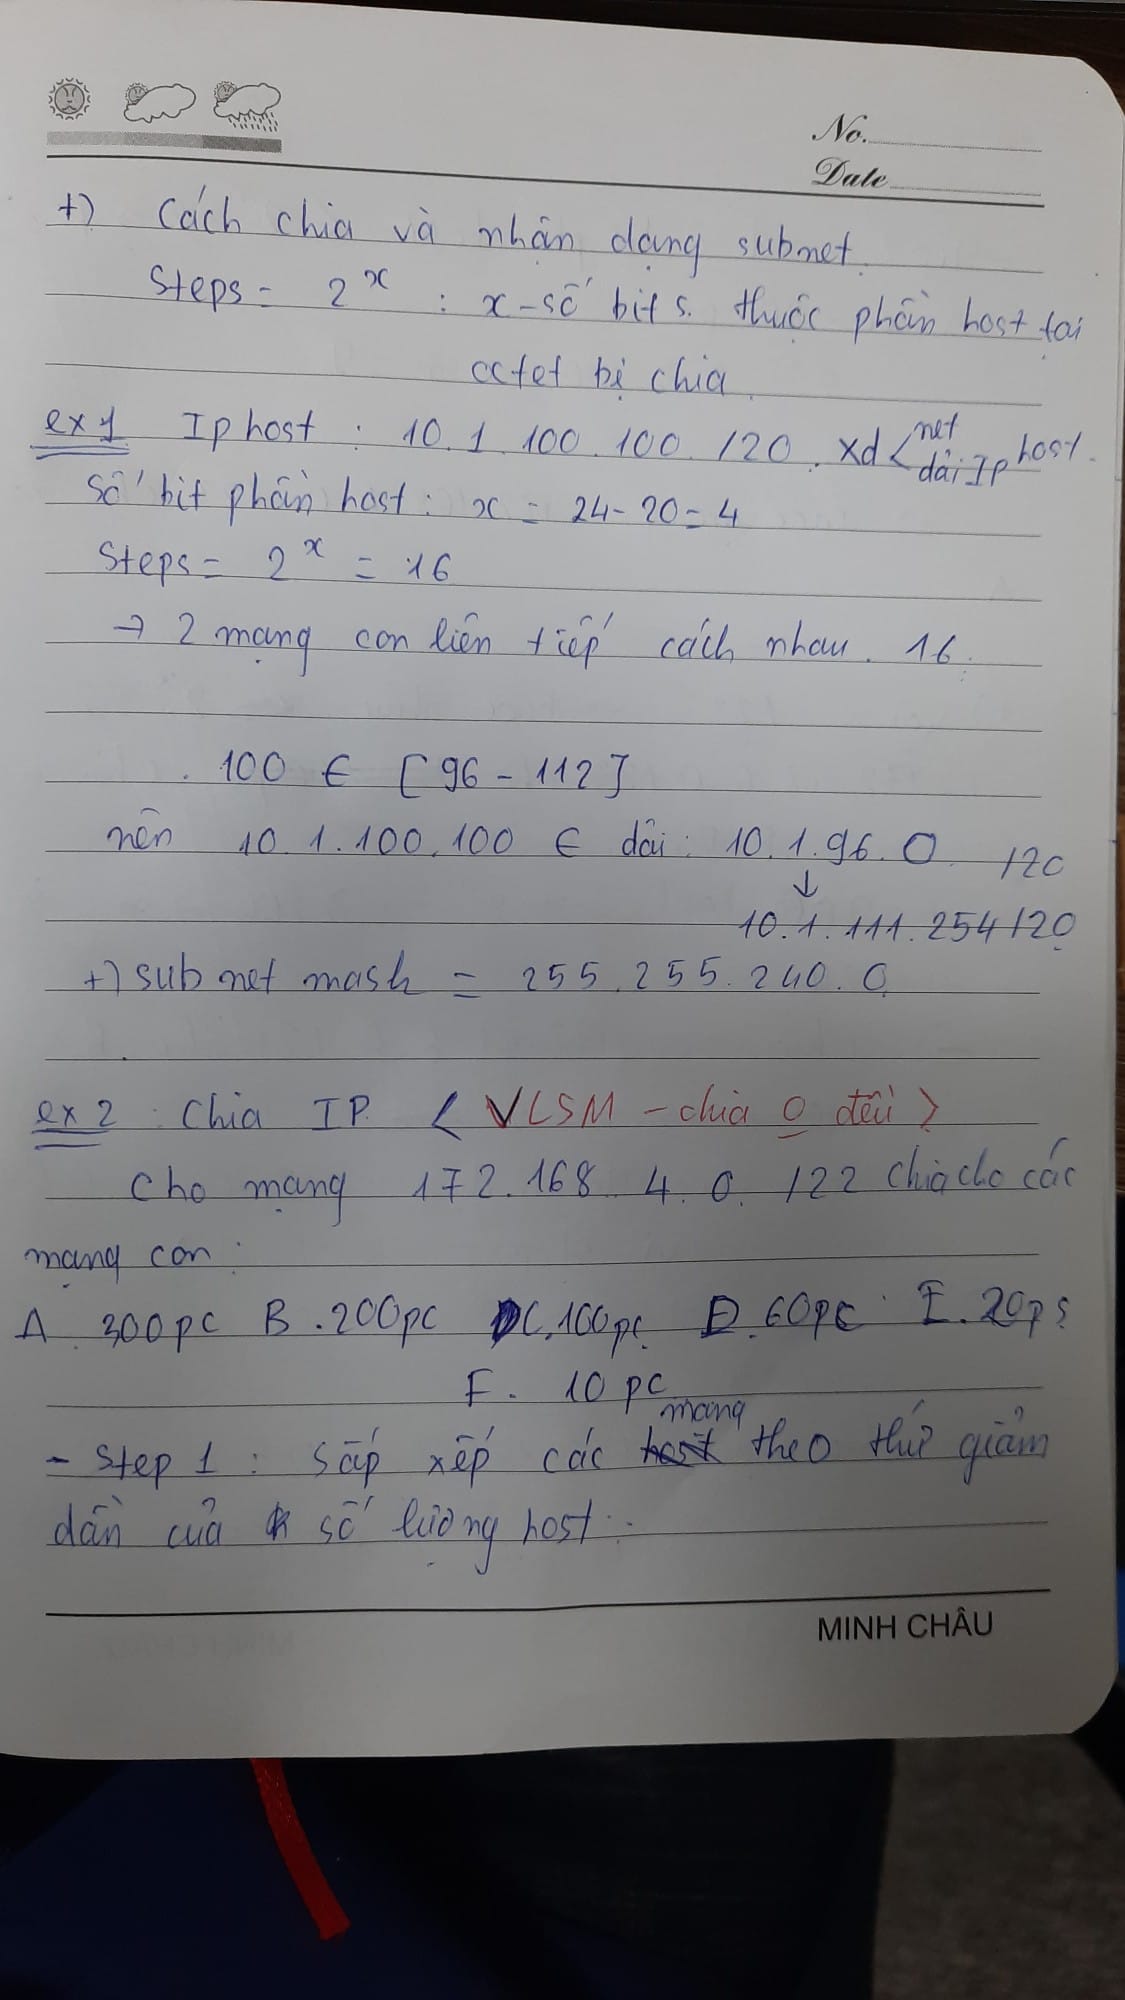 No.
Date
+) Cách chia và nhận dạng subnet.
Steps = 2^x : x - số bits. thuộc phần host tại
octet bị chia.
ex1 Ip host : 10.1.100.100./20. xđ < net dải Ip host.
Số bit phần host : x = 24 - 20 = 4
Steps = 2^x = 16
→ 2 mạng con liên tiếp cách nhau. 16.
100 € [96 - 112]
nên 10.1.100.100 € dải : 10.1.96.0 /20
↓
10.1.111.254/20
+) subnet mask = 255.255.240.0
ex2 : Chia IP < VLSM - chia 0 đều >
Cho mạng 172.168.4.0./22 chia cho các
mạng con :
A. 300pc B. 200pc C. 100pc D. 60pc E. 20ps
F. 10 pc
- Step 1 : Sắp xếp các mạng theo thứ giảm
dần của số lượng host.
MINH CHÂU